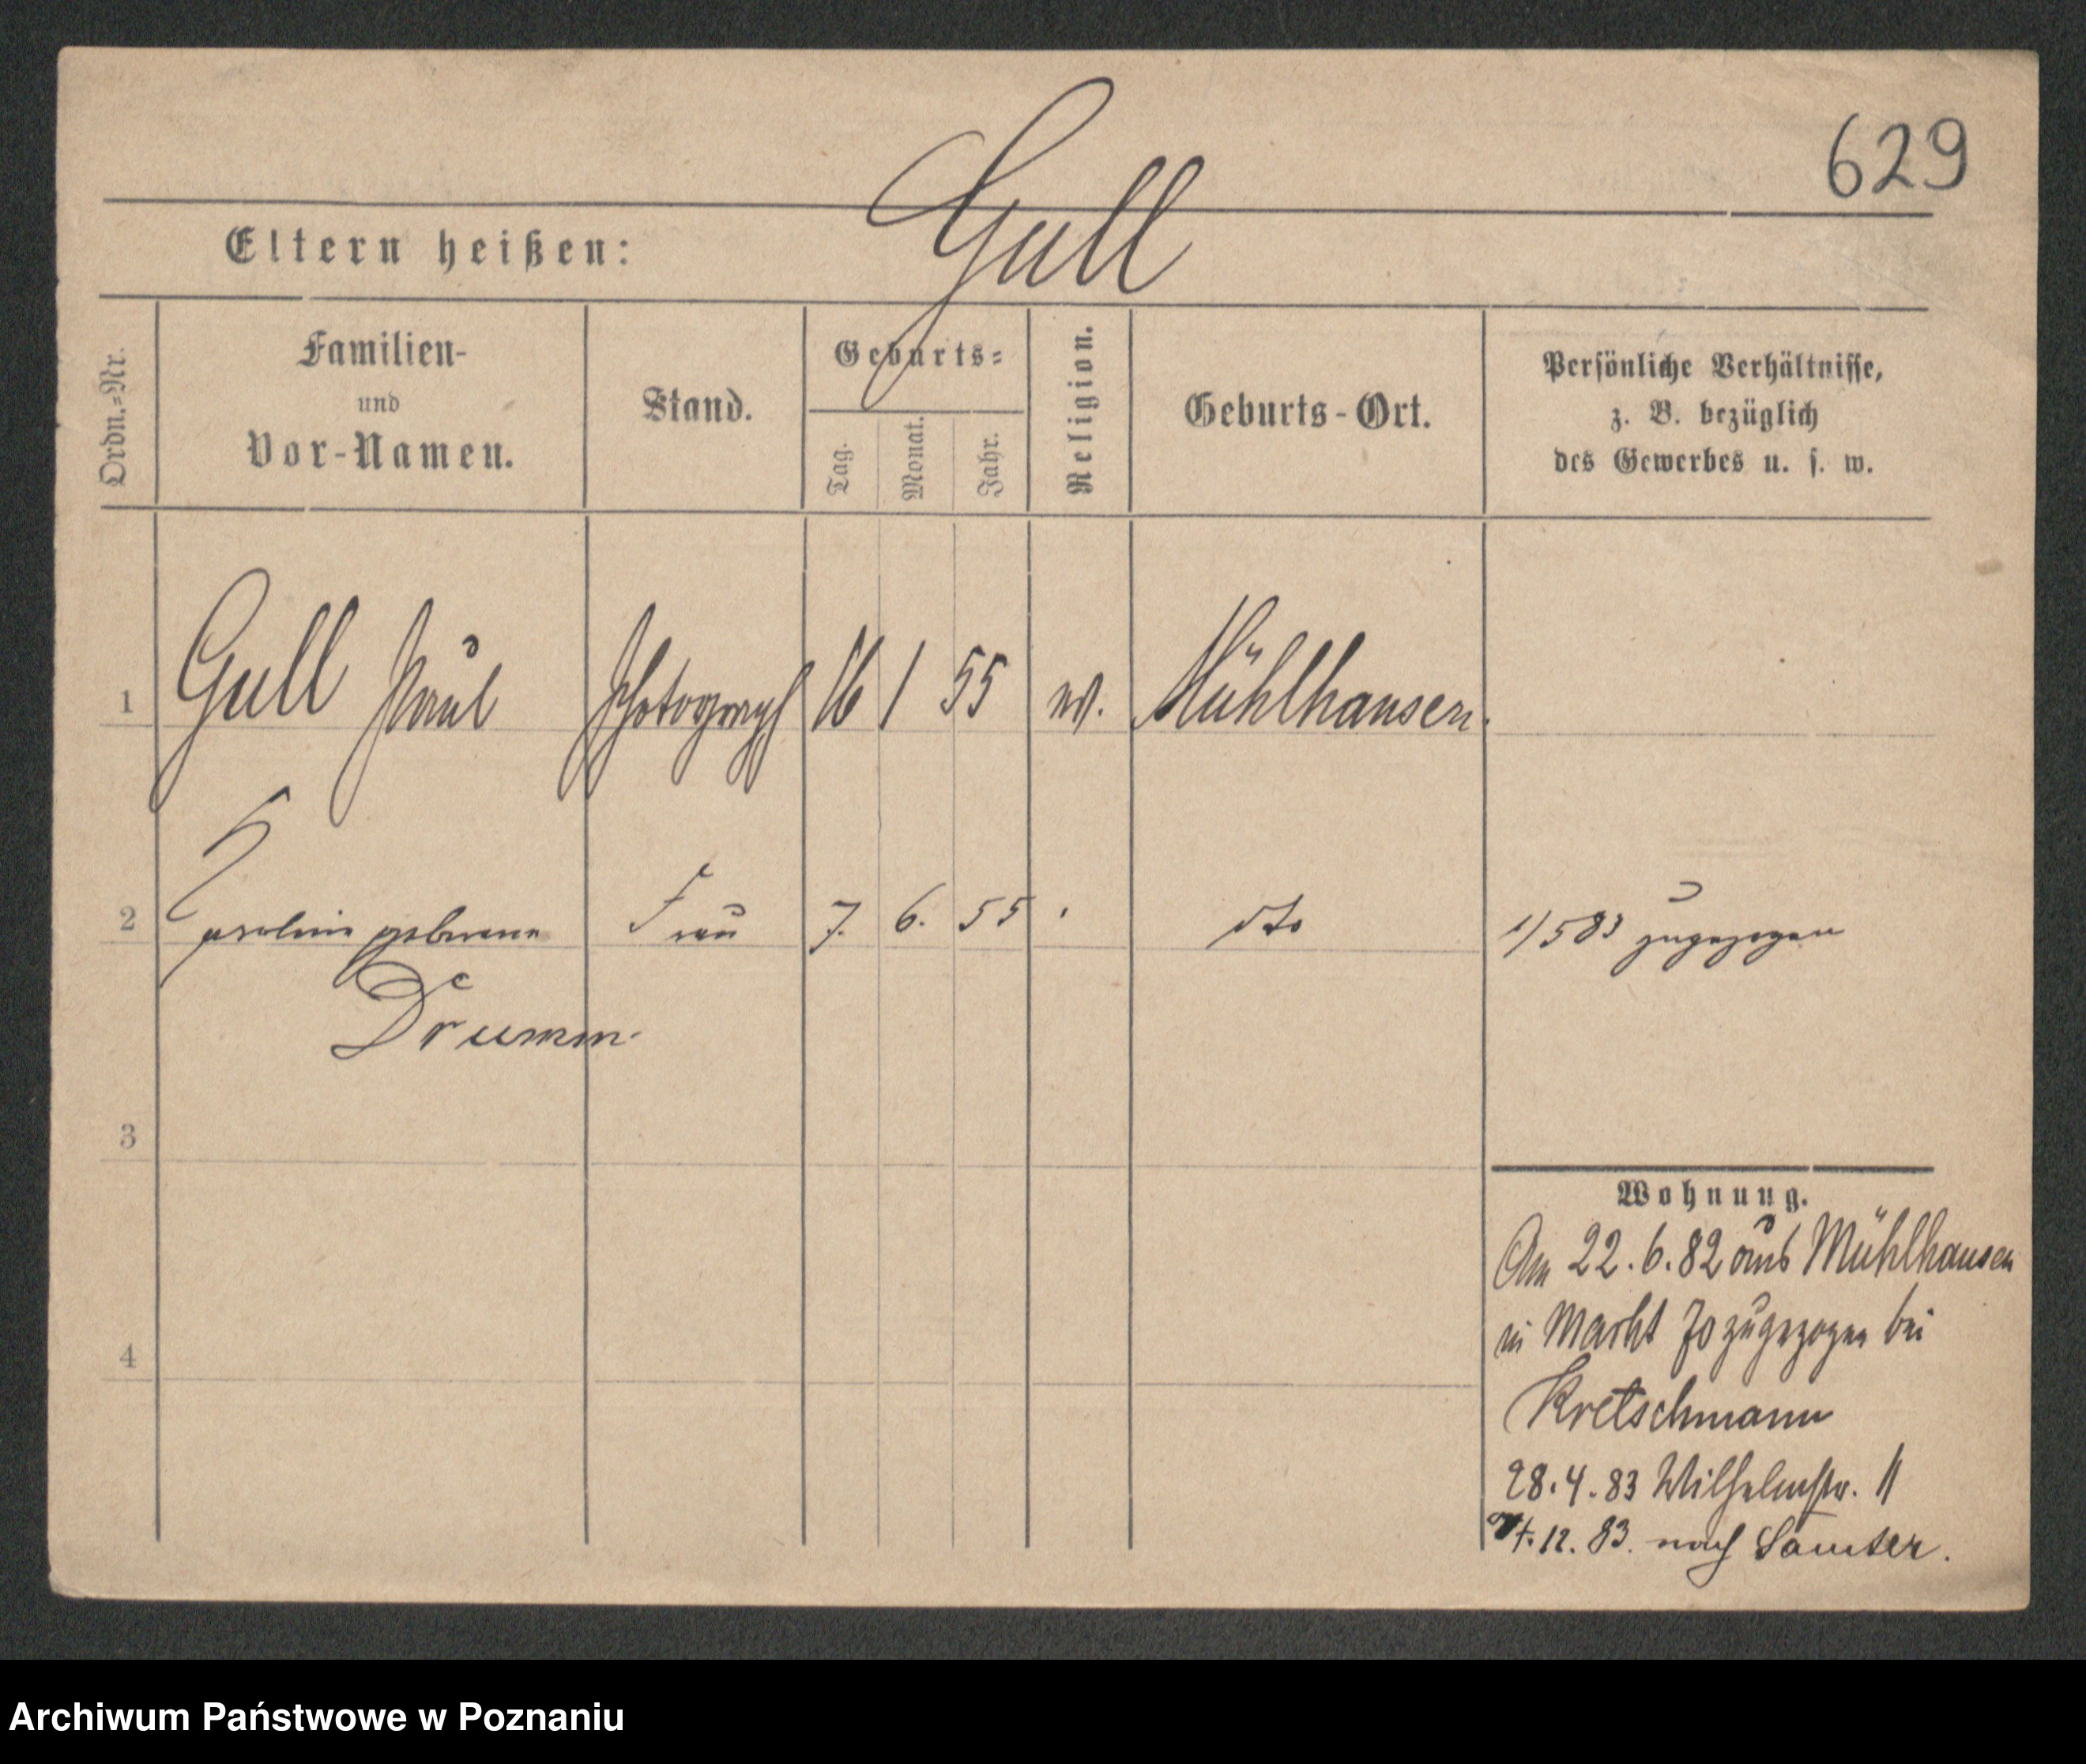 629
Gull
Eltern heißen:
Ordn.-Nr.
Familien-
und
Vor-Namen.
Stand.
Geburts-
Tag.
Monat.
Jahr.
Religion.
Geburts-Ort.
Persönliche Verhältnisse,
z. B. bezüglich
des Gewerbes u. s. w.
1 Gull Paul Photograph 16 1 55 Mühlhausen.
2 Karoline geborene Frau 7. 6. 55 dto 1/5 83 zugezogen
Drumm.
3
Wohnung.
Am 22.6.82 aus Mühlhausen
in Markt 70 zugezogen bei
4
Kretschmann
28.4.83 Wilhelmstr. 11
12. 83. nach Samter.
Archiwum Państwowe w Poznaniu